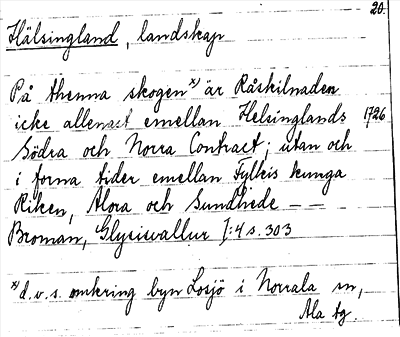 20.
Hälsingland, landskap
På thenna skogen x) är Råskilnaden
icke allenast emellan Helsinglands 1726
Södra och Norra Contract; utan och
i forna tider emellan Fylkis kunga
Riken, Alora och Sundhede – –
Broman, Glysisvallur I:4 s. 303
x) d.v.s. omkring byn Losjö i Norrala sn,
Ala tg.